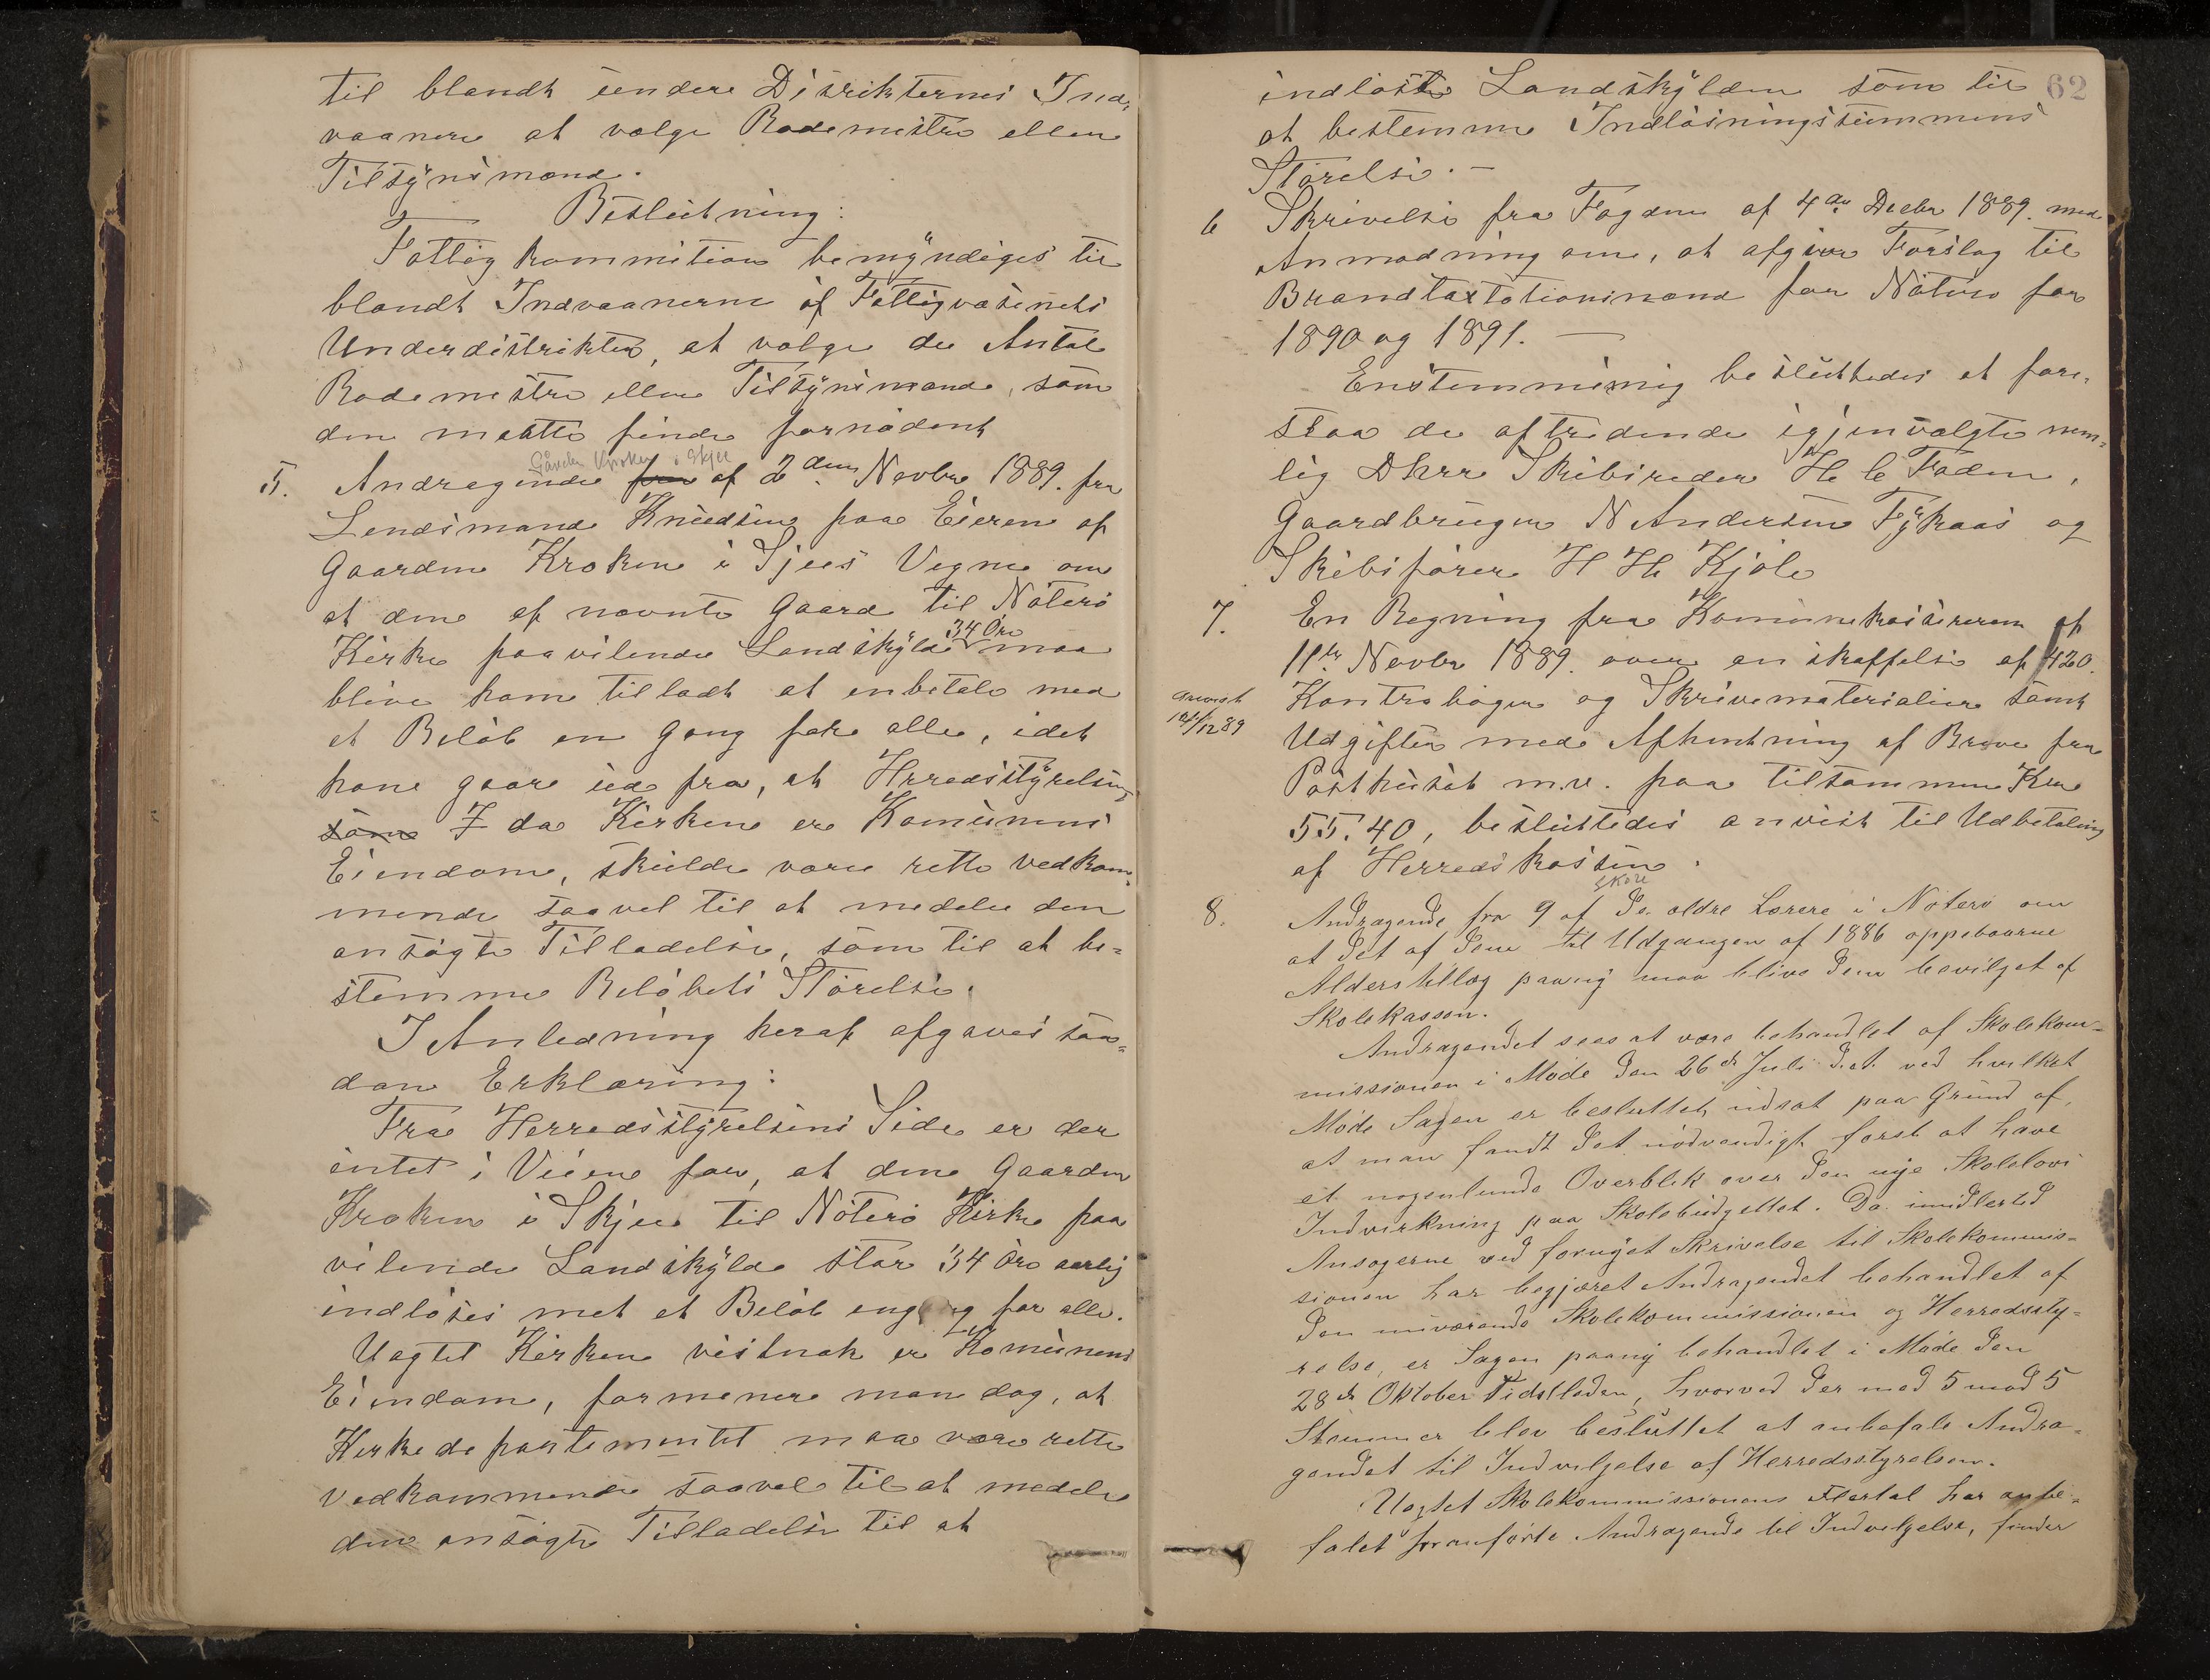 til blandt ündere Disrikternes Ind,
vaanere at vælge Rodemestre eller
Tilsÿnsmænd.
Beslutning:
Fattigkommition bemÿndiges til
blandt Indvaanerne af Fattigvæsenets
Underdistrikter, at vælge de Antal
Rodemestre eller Tilsÿnsmænd, som
den maatte finde fornødent
Gården Kroken i Skjee
5. Andragende fra af 2den Novbr 1889. fra
Lendsmand Knüdsen paa Eieren af
Gaarden Kroken i Sjees Vegne om
at den af nævnte Gaard til Nøterø
34 Øre
Kirke paavilende Landskÿld maa
blive ham tilladt at enbetale med
et Beløb en Gang for alle, idet
han gaar ud fra, at Herredsstÿrelsen,
som da Kirken er Komünens
Eiendom, skulde være rette vedkom,
mende saavel til at meddele den
ansøgte Tilladelse, som til at be=
stemme Beløbets Størelse.
I Anledning heraf afgaves saa=
dan Erklæring:
Fra Herredsstÿrelsens Side er der
intet i Veien for, at den Gaarden
Kroken i Skjee til Nøterø Kirke paa
vilende Landskÿld stor 34 Øre aarlig
indløses met et Beløb engang for alle.
Uagtet Kirken vistnok er Komünens
Eiendom, formener man dog, at
Kirkedepartementet maa være rette
Vedkommende saavel til at meddele
den ansøgte Tilladelse til at
62
indløste Landskÿlden som til
at bestemme Indløsningssummens
Størelse. —
6 Skrivelse fra Fogden af 4de Decbr 1889. med
Anmodning om, at afgive Forslag til
Brandtaxtationsmænd for Nøterø for
1890 og 1891. —
Enstemmimig beslüttedes at fore,
staa de aftrædende igjenvalgte nem,
lig Dhrr Skibsreder H C Foden,
Gaardbrüger N Andersen Fÿkaas og
Skibsfører H H Kjøle
7. En Regning fra Komünekassereren af
11te Novbr 1889. over anskaffelse af 420.
anvist
14/12 89
Kontrabøger og Skrivematerialier samt
Udgifter med Afhentning af Breve fra
Posthüset m.v. paa tilsammen Kr
55.40, beslüttedes anvist til Udbetaling
af Herredskassen.
8. Andragende fra 9 af de ældre Lærere i Nøterø om
at det af dem til Udgangen af 1886 oppebaarne
Alderstillæg paanÿ maa blive dem bevilget af
Skolekassen.
Andragendet sees at være behandlet af Skolekom=
missionen i Møde den 26de Juli d.A. ved hvilket
Møde Sagen er besluttet udsat paa Grund af,
at man fandt det nødvendigt først at have
et nogenlunde Overblik over den nye Skolelovs
Indvirkning paa Skolebudgettet. Da imidlertid
Ansøgerne ved fornÿet Skrivelse til Skolekommis=
sionen har begjæret Andragendet behandlet af
den nuværende Skolekommissionen og Herredssty=
relse, er Sagen paanÿ behandlet i Møde den
28de Oktober sidstleden, hvorved der med 5 mod 5
Stemmer blev besluttet at anbefale Andra=
gendet til Indvilgelse af Herredsstyrelsen.
Uagtet Skolekommissionens Flertal har anbe=
falet foranførte Andragende til Indvilgelse, finder